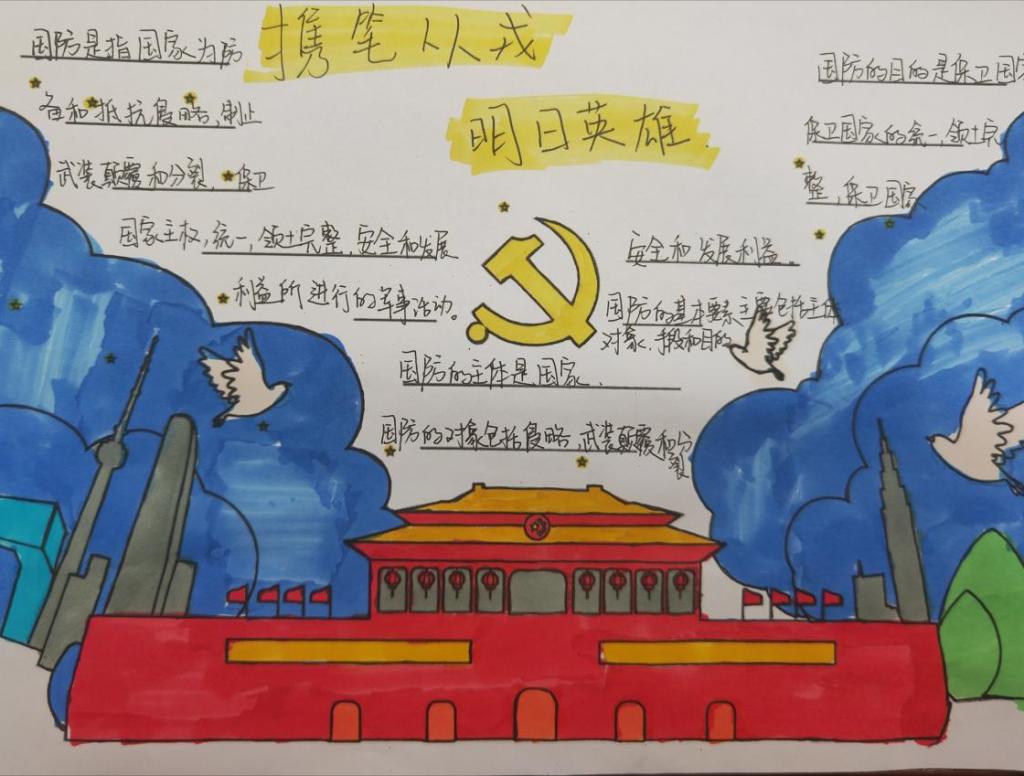 携笔从戎
明日英雄
国防是指国家为防
备和抵抗侵略,制止
武装颠覆和分裂,保卫
国家主权,统一,领土完整,安全和发展
利益所进行的军事活动。
国防的主体是国家.
国防的对象包括侵略,武装颠覆和分
裂
国防的目的是保卫国家
保卫国家的统一,领土完
整,保卫国家
安全和发展利益.
国防的基本要素主要包括主体
对象、手段和目的